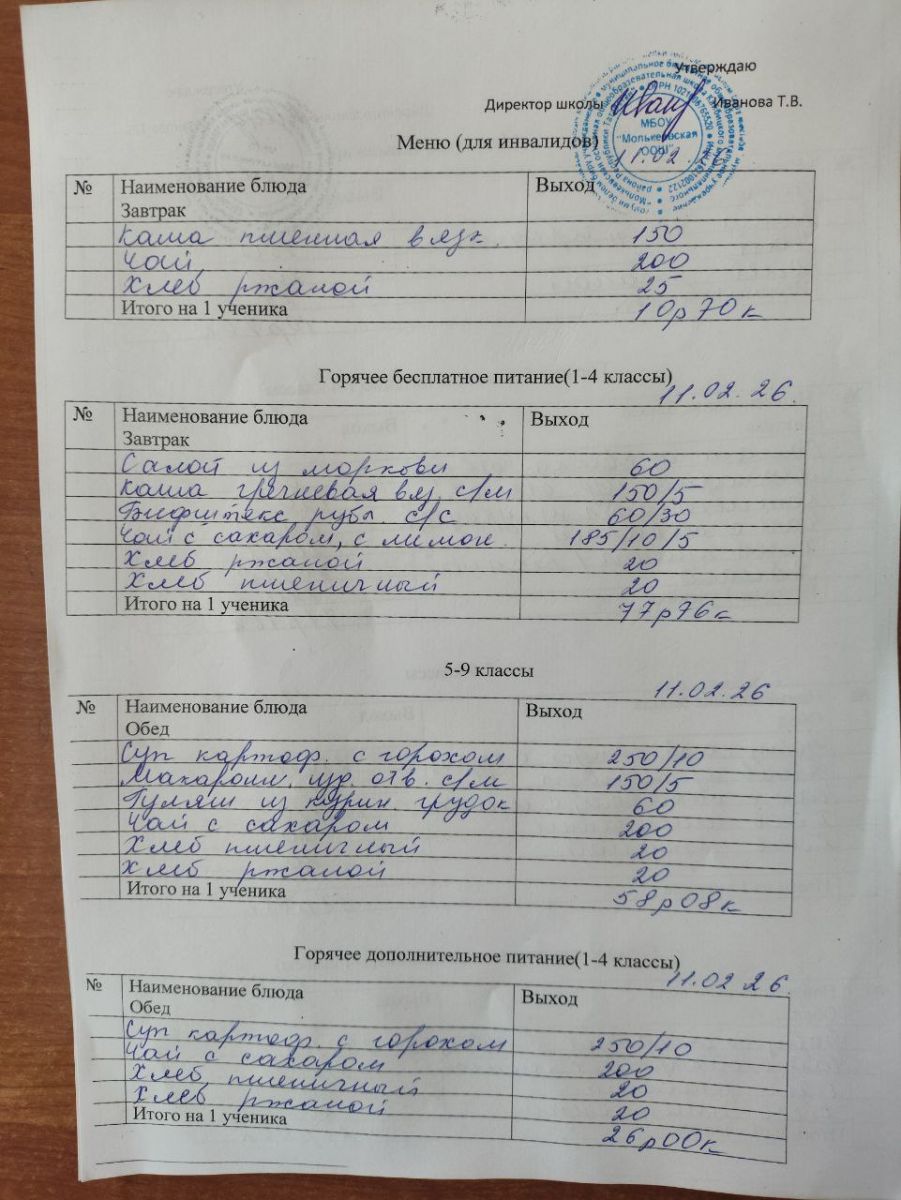 Утверждаю
Директор школы Иванова Т.В.
МБОУ
"Молькеевская
ООШ"
Меню (для инвалидов) 11.02.26
№ Наименование блюда Выход
Завтрак
Каша пшенная вязк. 150
Чай 200
Хлеб ржаной 25
Итого на 1 ученика 10р70к
Горячее бесплатное питание(1-4 классы)
11.02.26.
№ Наименование блюда Выход
Завтрак
Салат из моркови 60
Каша гречневая вяз. с/м 150/5
Бифштекс рубл. с/с 60/30
Чай с сахаром, с лимон. 185/10/5
Хлеб ржаной 20
Хлеб пшеничный 20
Итого на 1 ученика 77р76к
5-9 классы
11.02.26
№ Наименование блюда Выход
Обед
Суп картоф. с горохом 250/10
Макарон. изд. отв. с/м 150/5
Гуляш из курин. грудок 60
Чай с сахаром 200
Хлеб пшеничный 20
Хлеб ржаной 20
Итого на 1 ученика 58р08к
Горячее дополнительное питание(1-4 классы)
11.02.26.
№ Наименование блюда Выход
Обед
Суп картоф. с горохом 250/10
Чай с сахаром 200
Хлеб пшеничный 20
Хлеб ржаной 20
Итого на 1 ученика 26р00к